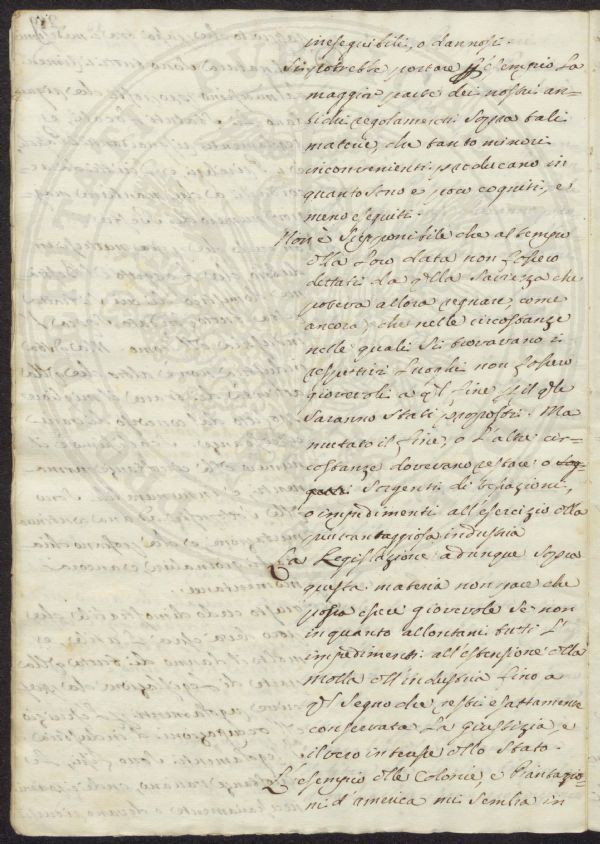 ineseguibili, o dannosi.
Si potrebbe portare p esempio la
maggior parte dei nostri an-
tichi regolamenti sopra tali
materie, che tanto minori
inconvenienti producano in
quanto sono e poco cogniti, e
meno eseguiti.
Non è supponibile che al tempo
della loro data non fossero
dettati da qlla saviezza che
poteva allora regnare, come
ancora, che nelle circostanze
nelle quali si trovavano i
respettivi Luoghi non fossero
giovevoli a ql fine p il qle
saranno stati proposti. Ma
mutato il fine, o l'altre cir-
costanze dovevano restare o
sorgenti di vessazioni,
o impedimenti all'esercizio della
più vantaggiosa industria
La Legislazione adunque sopra
questa materia non pare che
possa essere giovevole se non
in quanto allontani tutti l'
impedimenti all'estensione della
molla dell'industria fino a
ql segno che resti esattamente
conservata la giustizia, e
il vero interesse dello Stato.
L'esempio delle Colonie, e Piantazio-
ni d'america mi sembra in